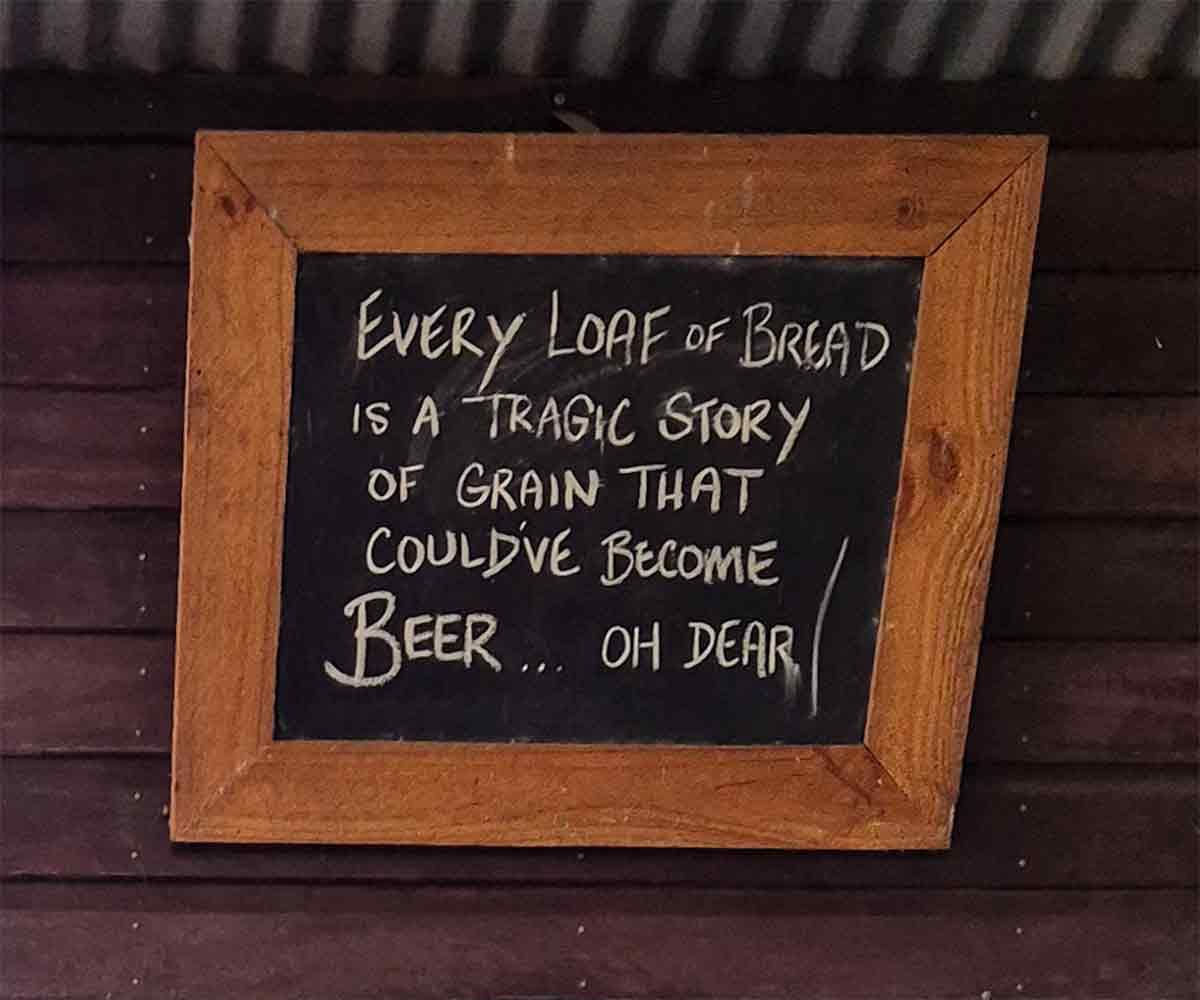 EVERY LOAF OF BREAD
IS A TRAGIC STORY
OF GRAIN THAT
COULD'VE BECOME
BEER... OH DEAR